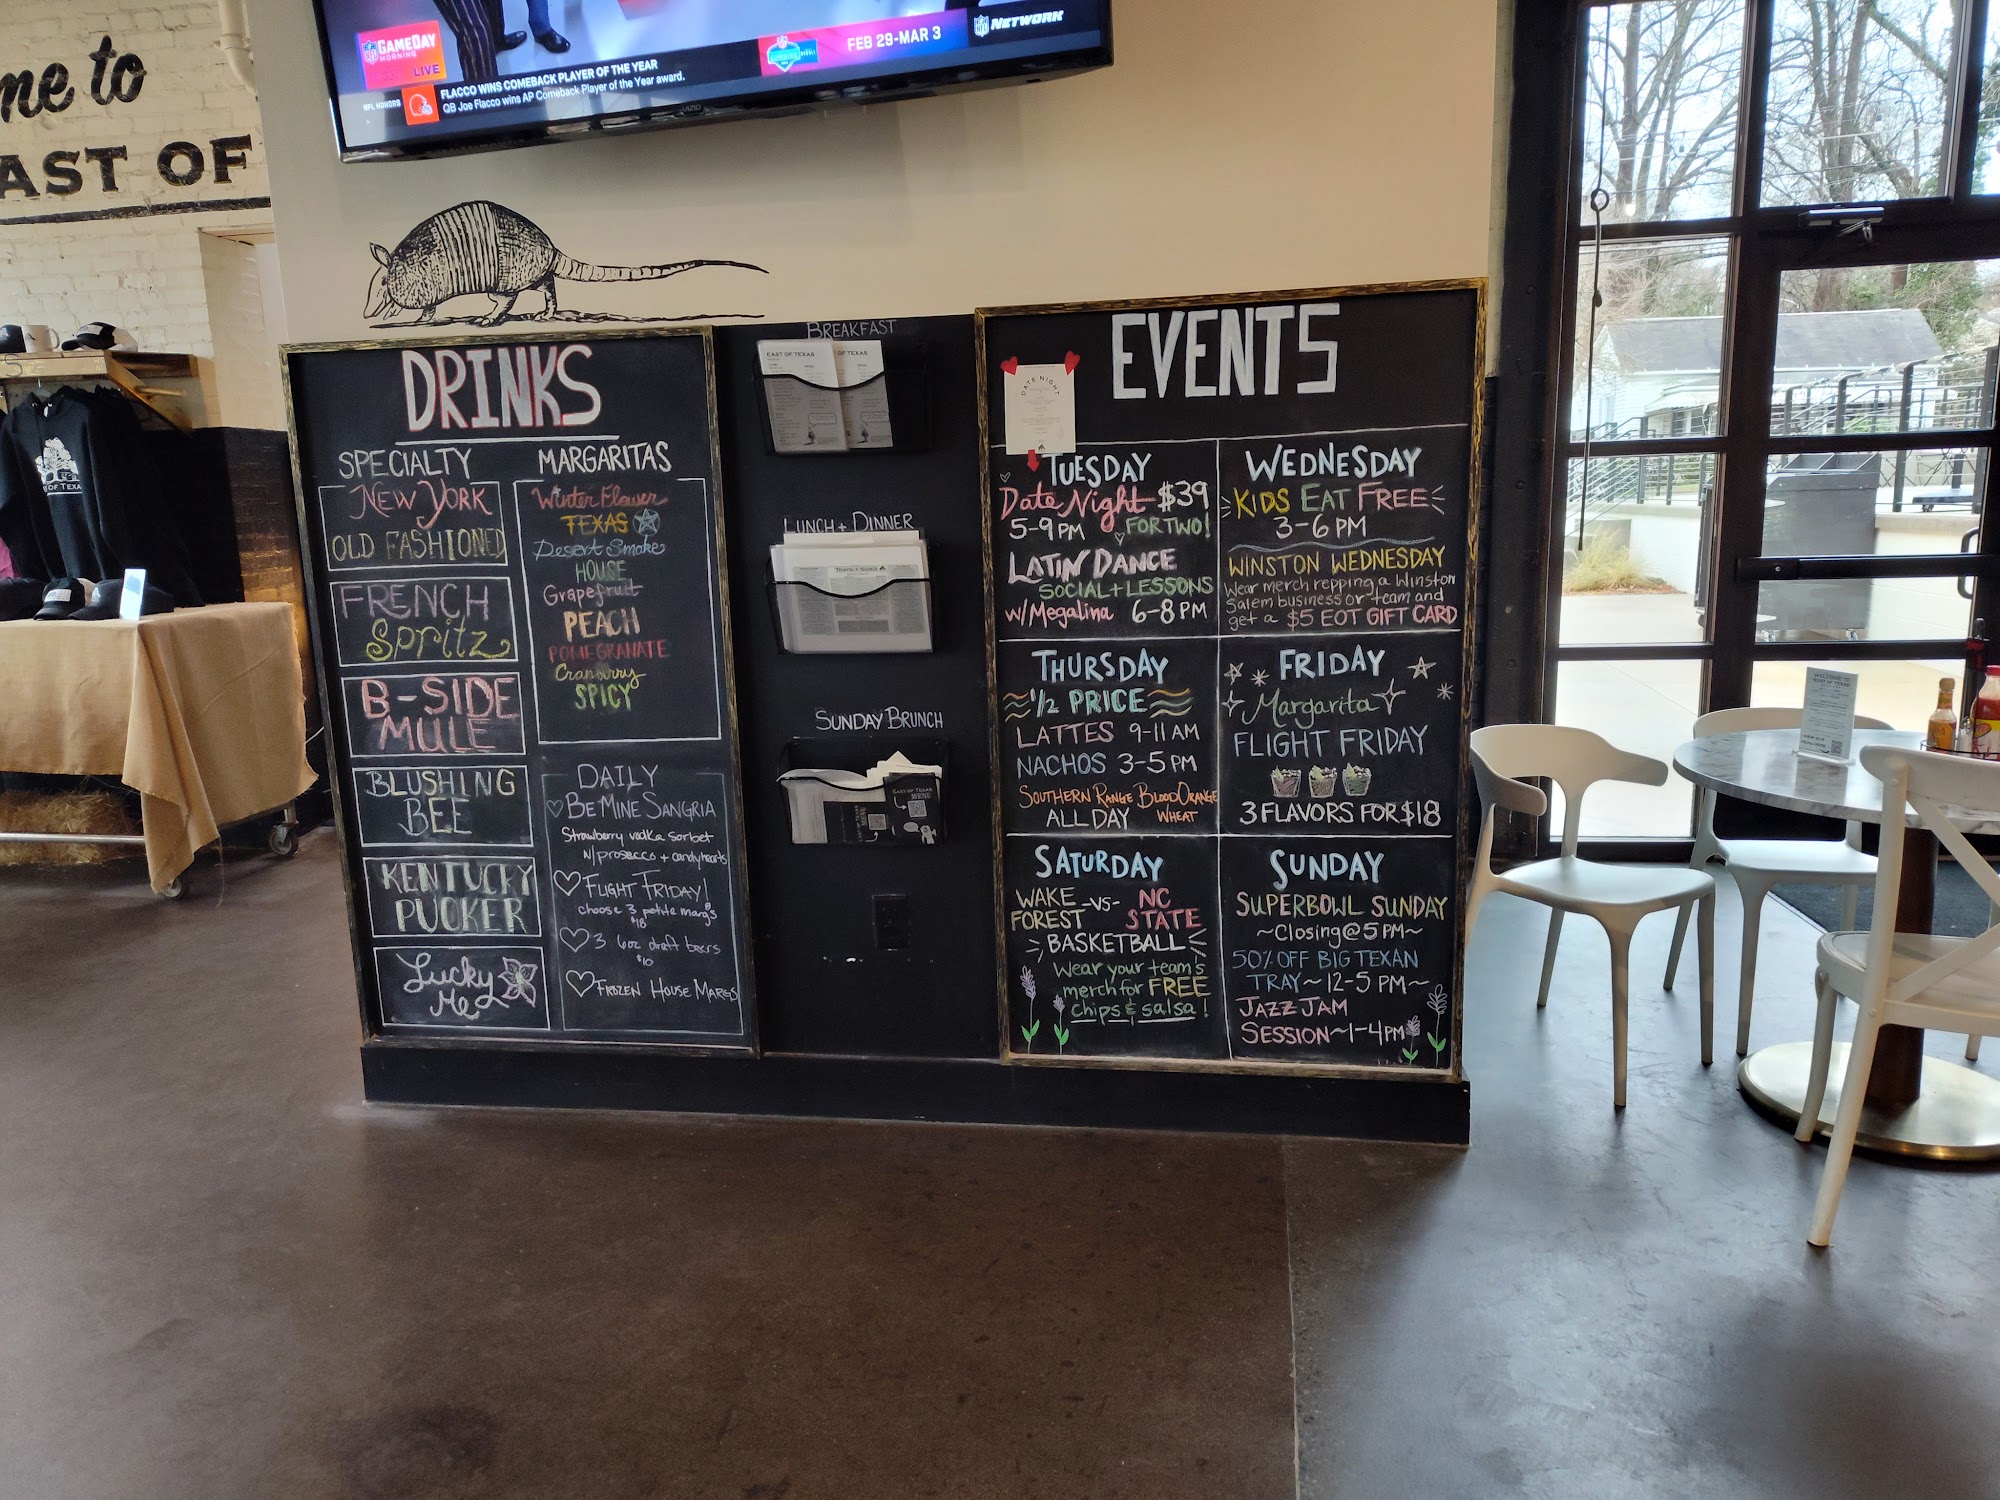 me to
AST OF
NFL GAMEDAY
MORNING
LIVE
FEB 29-MAR 3
NFL NETWORK
NFL HONORS
FLACCO WINS COMEBACK PLAYER OF THE YEAR
QB Joe Flacco wins AP Comeback Player of the Year award.
VIZIO
DRINKS
SPECIALTY
NEW YORK
OLD FASHIONED
FRENCH
Spritz
B-SIDE
MULE
BLUSHING
BEE
KENTUCKY
PUCKER
Lucky
Me
MARGARITAS
Winter Flower
TEXAS
Desert Smoke
HOUSE
Grapefruit
PEACH
POMEGRANATE
Cranberry
SPICY
DAILY
BE MINE SANGRIA
Strawberry vodka sorbet
w/prosecco + candyhearts
FLIGHT FRIDAY!
choose 3 petite marg's
$18
3 6oz draft beers
$10
FROZEN HOUSE MARGS
BREAKFAST
EAST OF TEXAS
OF TEXAS
LUNCH + DINNER
TRAYS + SIDES
SUNDAY BRUNCH
EAST OF TEXAS
MENU
EVENTS
DATE NIGHT
TUESDAY
Date Night $39
5-9 PM FOR TWO!
LATIN DANCE
SOCIAL + LESSONS
w/Megalina 6-8 PM
WEDNESDAY
KIDS EAT FREE
3-6 PM
WINSTON WEDNESDAY
Wear merch repping a Winston
Salem business or team and
get a $5 EOT GIFT CARD
THURSDAY
1/2 PRICE
LATTES 9-11 AM
NACHOS 3-5 PM
SOUTHERN RANGE BLOOD ORANGE
ALL DAY WHEAT
FRIDAY
Margarita
FLIGHT FRIDAY
3 FLAVORS FOR $18
SATURDAY
WAKE FOREST -VS- NC STATE
BASKETBALL
Wear your team's
merch for FREE
chips & salsa!
SUNDAY
SUPERBOWL SUNDAY
~Closing@5 PM~
50% OFF BIG TEXAN
TRAY~12-5 PM~
JAZZ JAM
SESSION~1-4PM
OF TEXA
WELCOME TO
EAST OF TEXAS